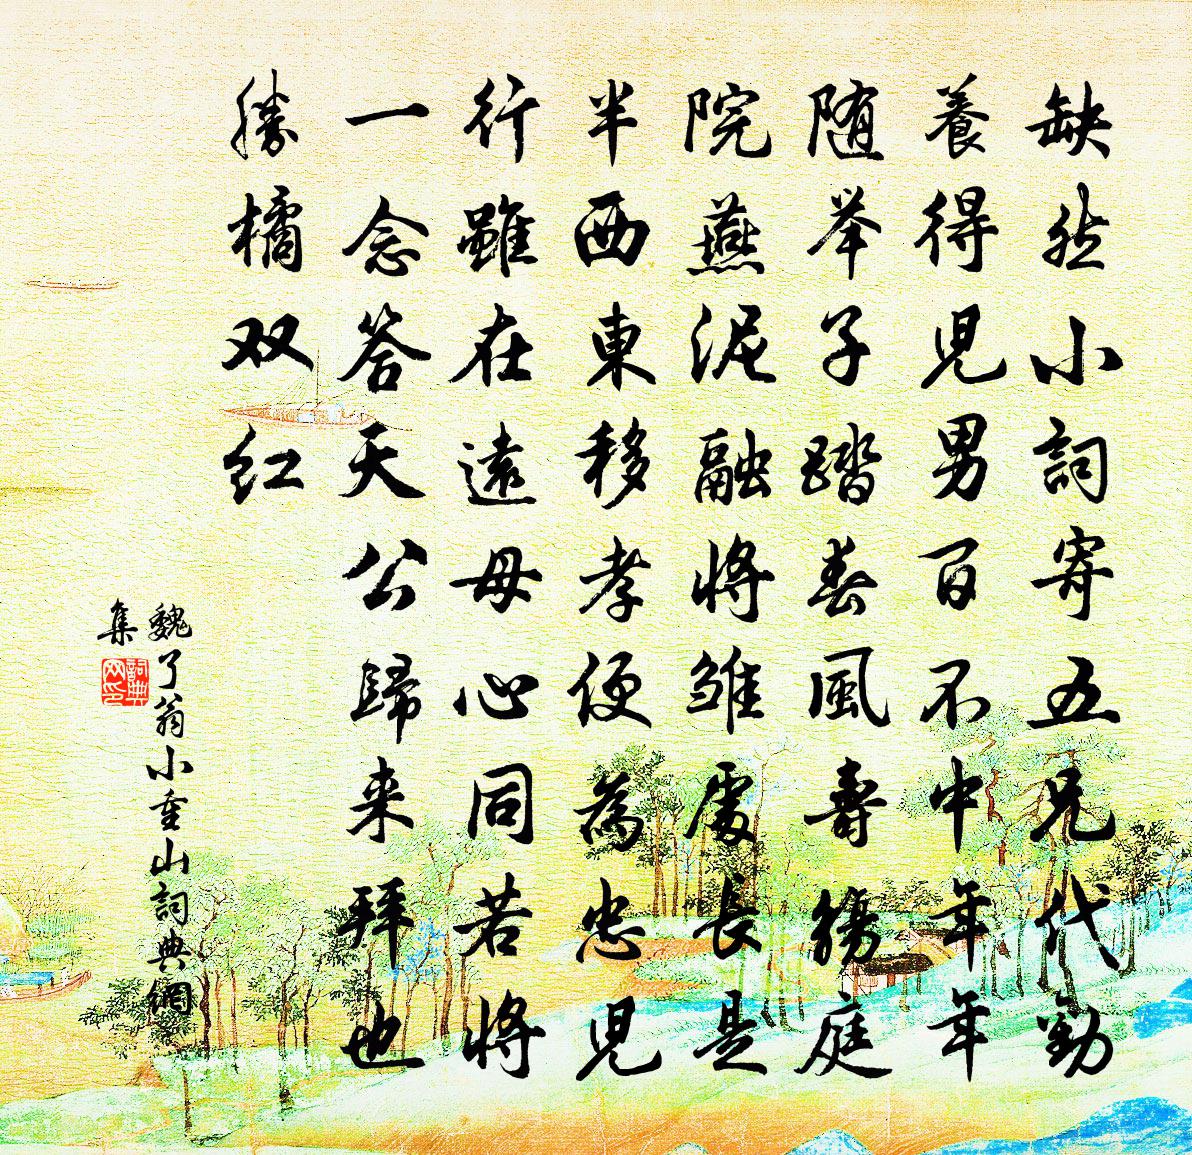 缺然小詞寄五兄代勤
養得児男百不中年年
随举子踏春風壽觴庭
院燕泥融將雏處長是
半西東移孝便為忠児
行雖在遠母心同若將
一念答天公歸来拜也
勝橘双红
魏了翁小重山詞典網
集
詞典
网印